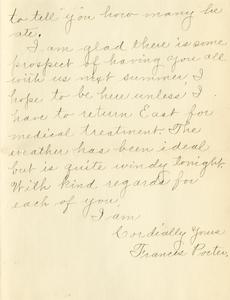 to tell you how many he
ate.
I am glad there is some
prospect of having you all
with us next summer, I
hope to be here unless I
have to return East for
medical treatment. The
weather has been ideal
but is quite windy tonight.
With kind regards for
each of you,
I am
Cordially Yours
Francis Porter.